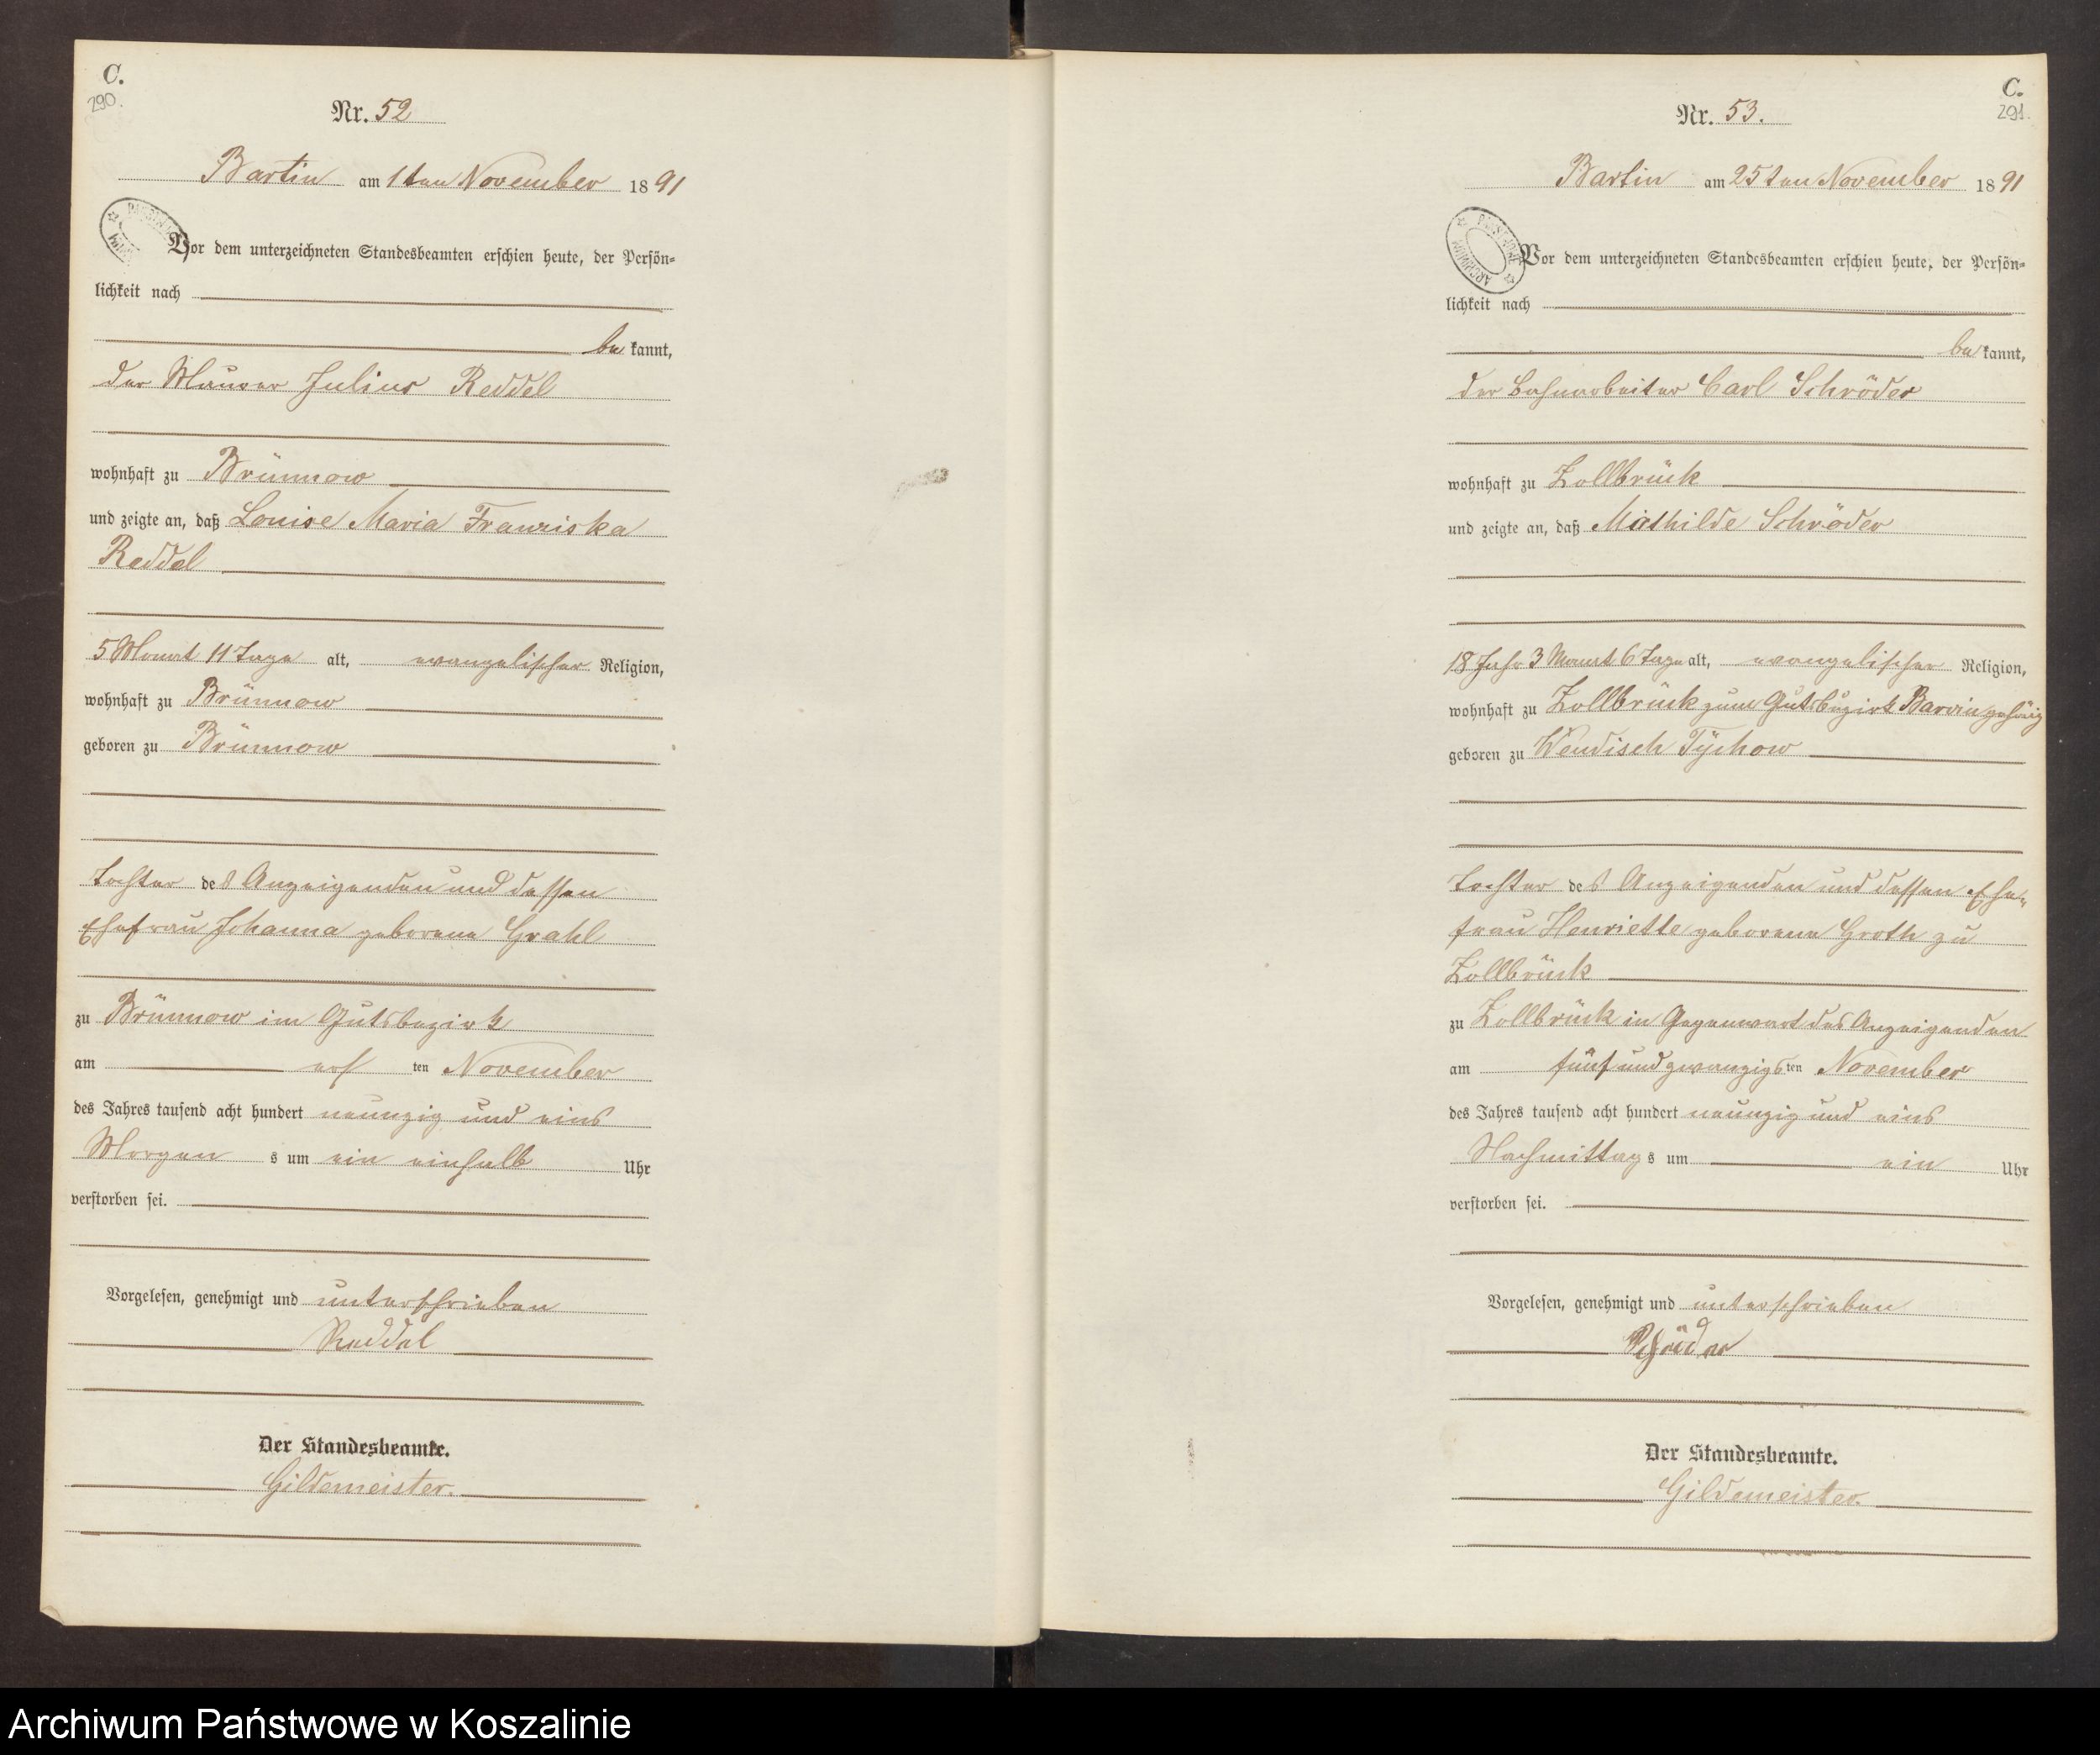 C.
290.
Nr. 52
Bartin am 1ten November 1891
Vor dem unterzeichneten Standesbeamten erschien heute, der Persön-
lichkeit nach
bekannt,
der Maurer Julius Reddel
wohnhaft zu Brünnow
und zeigte an, daß Louise Maria Franziska
Reddel
5 Monat 11 Tage alt, evangelischer Religion,
wohnhaft zu Brünnow
geboren zu Brünnow
Tochter des Anzeigenden und dessen
Ehefrau Johanna geborene Grahl
zu Brünnow im Gutsbezirk
am ten November
des Jahres tausend acht hundert neunzig und eins
Morgens um ein einhalb Uhr
verstorben sei.
Vorgelesen, genehmigt und unterschrieben
Reddel
Der Standesbeamte.
Gildemeister.
C.
291.
Nr. 53.
Bartin am 25ten November 1891
Vor dem unterzeichneten Standesbeamten erschien heute, der Persön-
lichkeit nach
bekannt,
der Bahnarbeiter Carl Schröder
wohnhaft zu Zollbrück
und zeigte an, daß Mathilde Schröder
18 Jahr 3 Monat 6 Tage alt, evangelischer Religion,
wohnhaft zu Zollbrück zum Gutsbezirk Barvin gehörig
geboren zu Wendisch Tychow
Tochter des Anzeigenden und dessen Ehe-
frau Henriette geborene Groth zu
Zollbrück
zu Zollbrück in Gegenwart des Anzeigenden
am fünfundzwanzigsten November
des Jahres tausend acht hundert neunzig und eins
Nachmittags um ein Uhr
verstorben sei.
Vorgelesen, genehmigt und unterschrieben
Schröder
Der Standesbeamte.
Gildemeister.
Archiwum Państwowe w Koszalinie